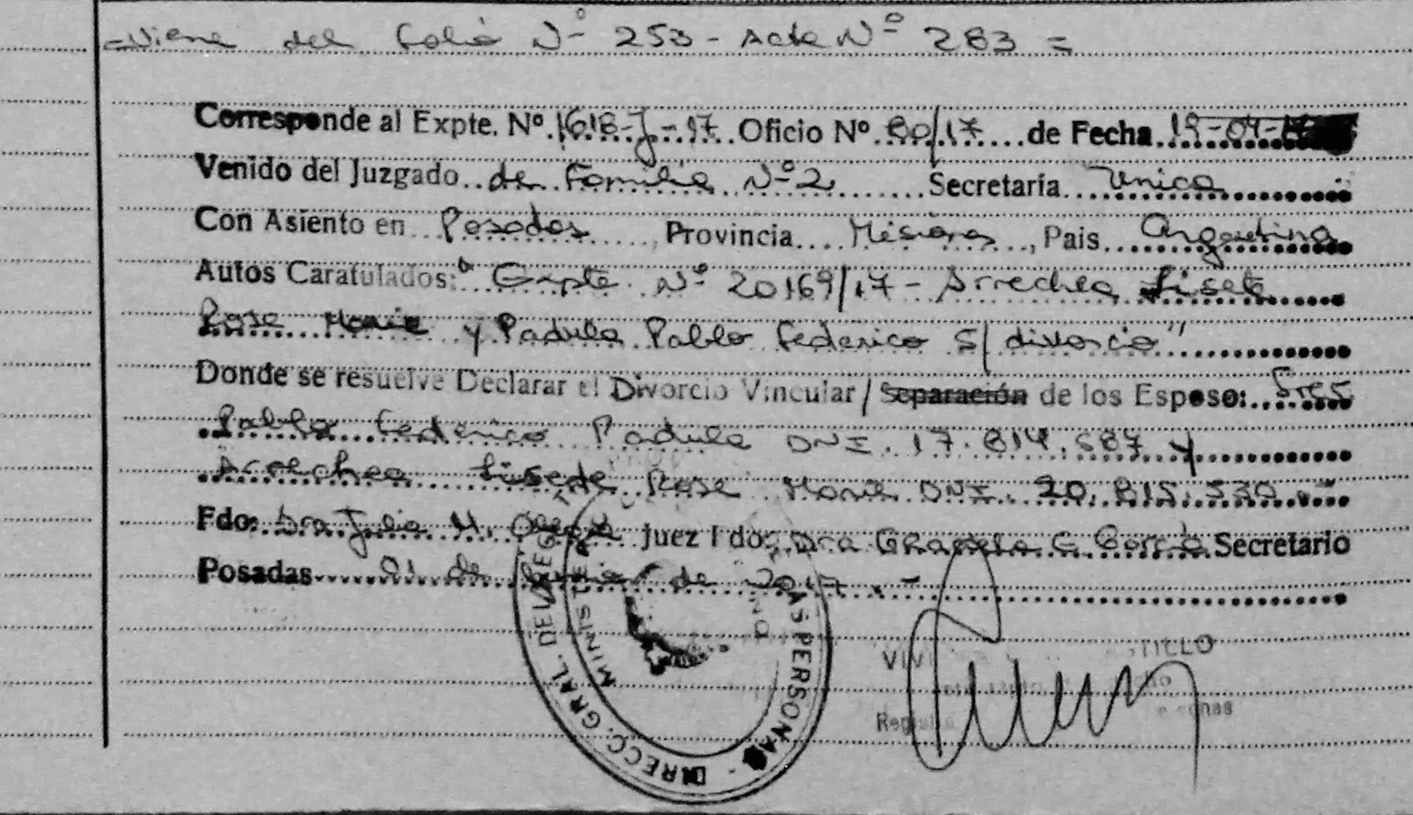 =Viene del folio Nº 253 - Acta Nº 283 =
Corresponde al Expte. Nº 1618-J-17 Oficio Nº 80/17 de Fecha 19-04-
Venido del Juzgado de Familia Nº 2 Secretaría Unica
Con Asiento en Posadas, Provincia Misiones, Pais Argentina
Autos Caratulados: "Expte. Nº 20169/17 - Arrechea Lisete
Rose Marie y Padula Pablo Federico S/ divorcio"
Donde se resuelve Declarar el Divorcio Vincular / Separación de los Esposo: Sres
Pablo Federico Padula DNI. 17.814.587 y
Arrechea Lisete Rose Marie DNI. 20.815.530.-
Fdo: Dra Julia M. Juez Fdo: Dra Graciela C. Secretario
Posadas 01 de de 2017.-
DIRECC. GRAL. DE LAS PERSONAS
MINISTE
VIVI TILLO
Regist sonas